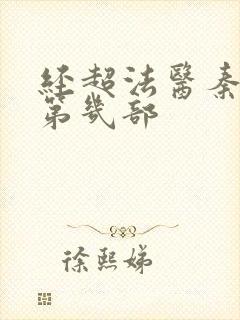 經超法醫秦
第幾部
徐熙娣